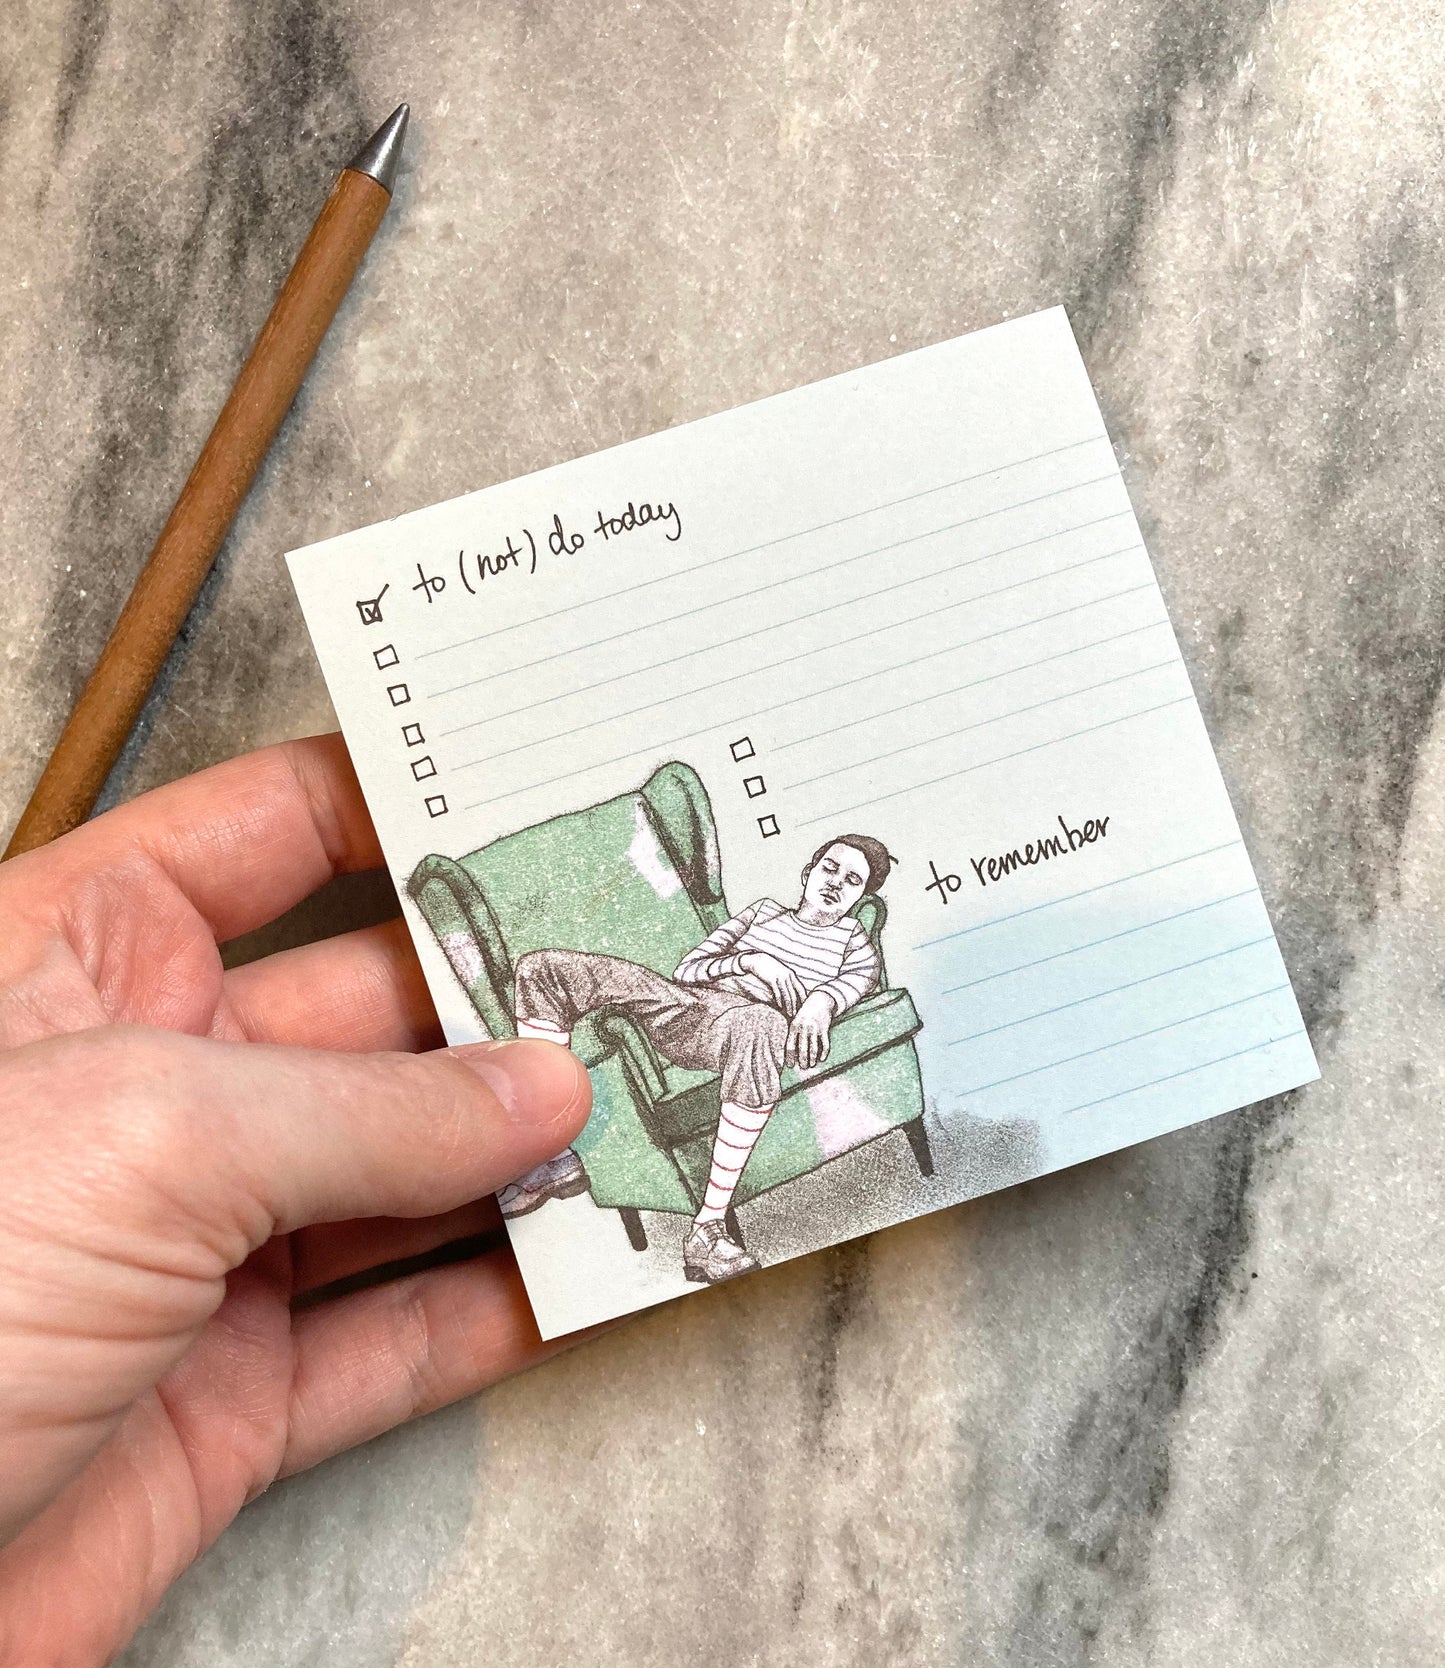 to (not) do today
to remember